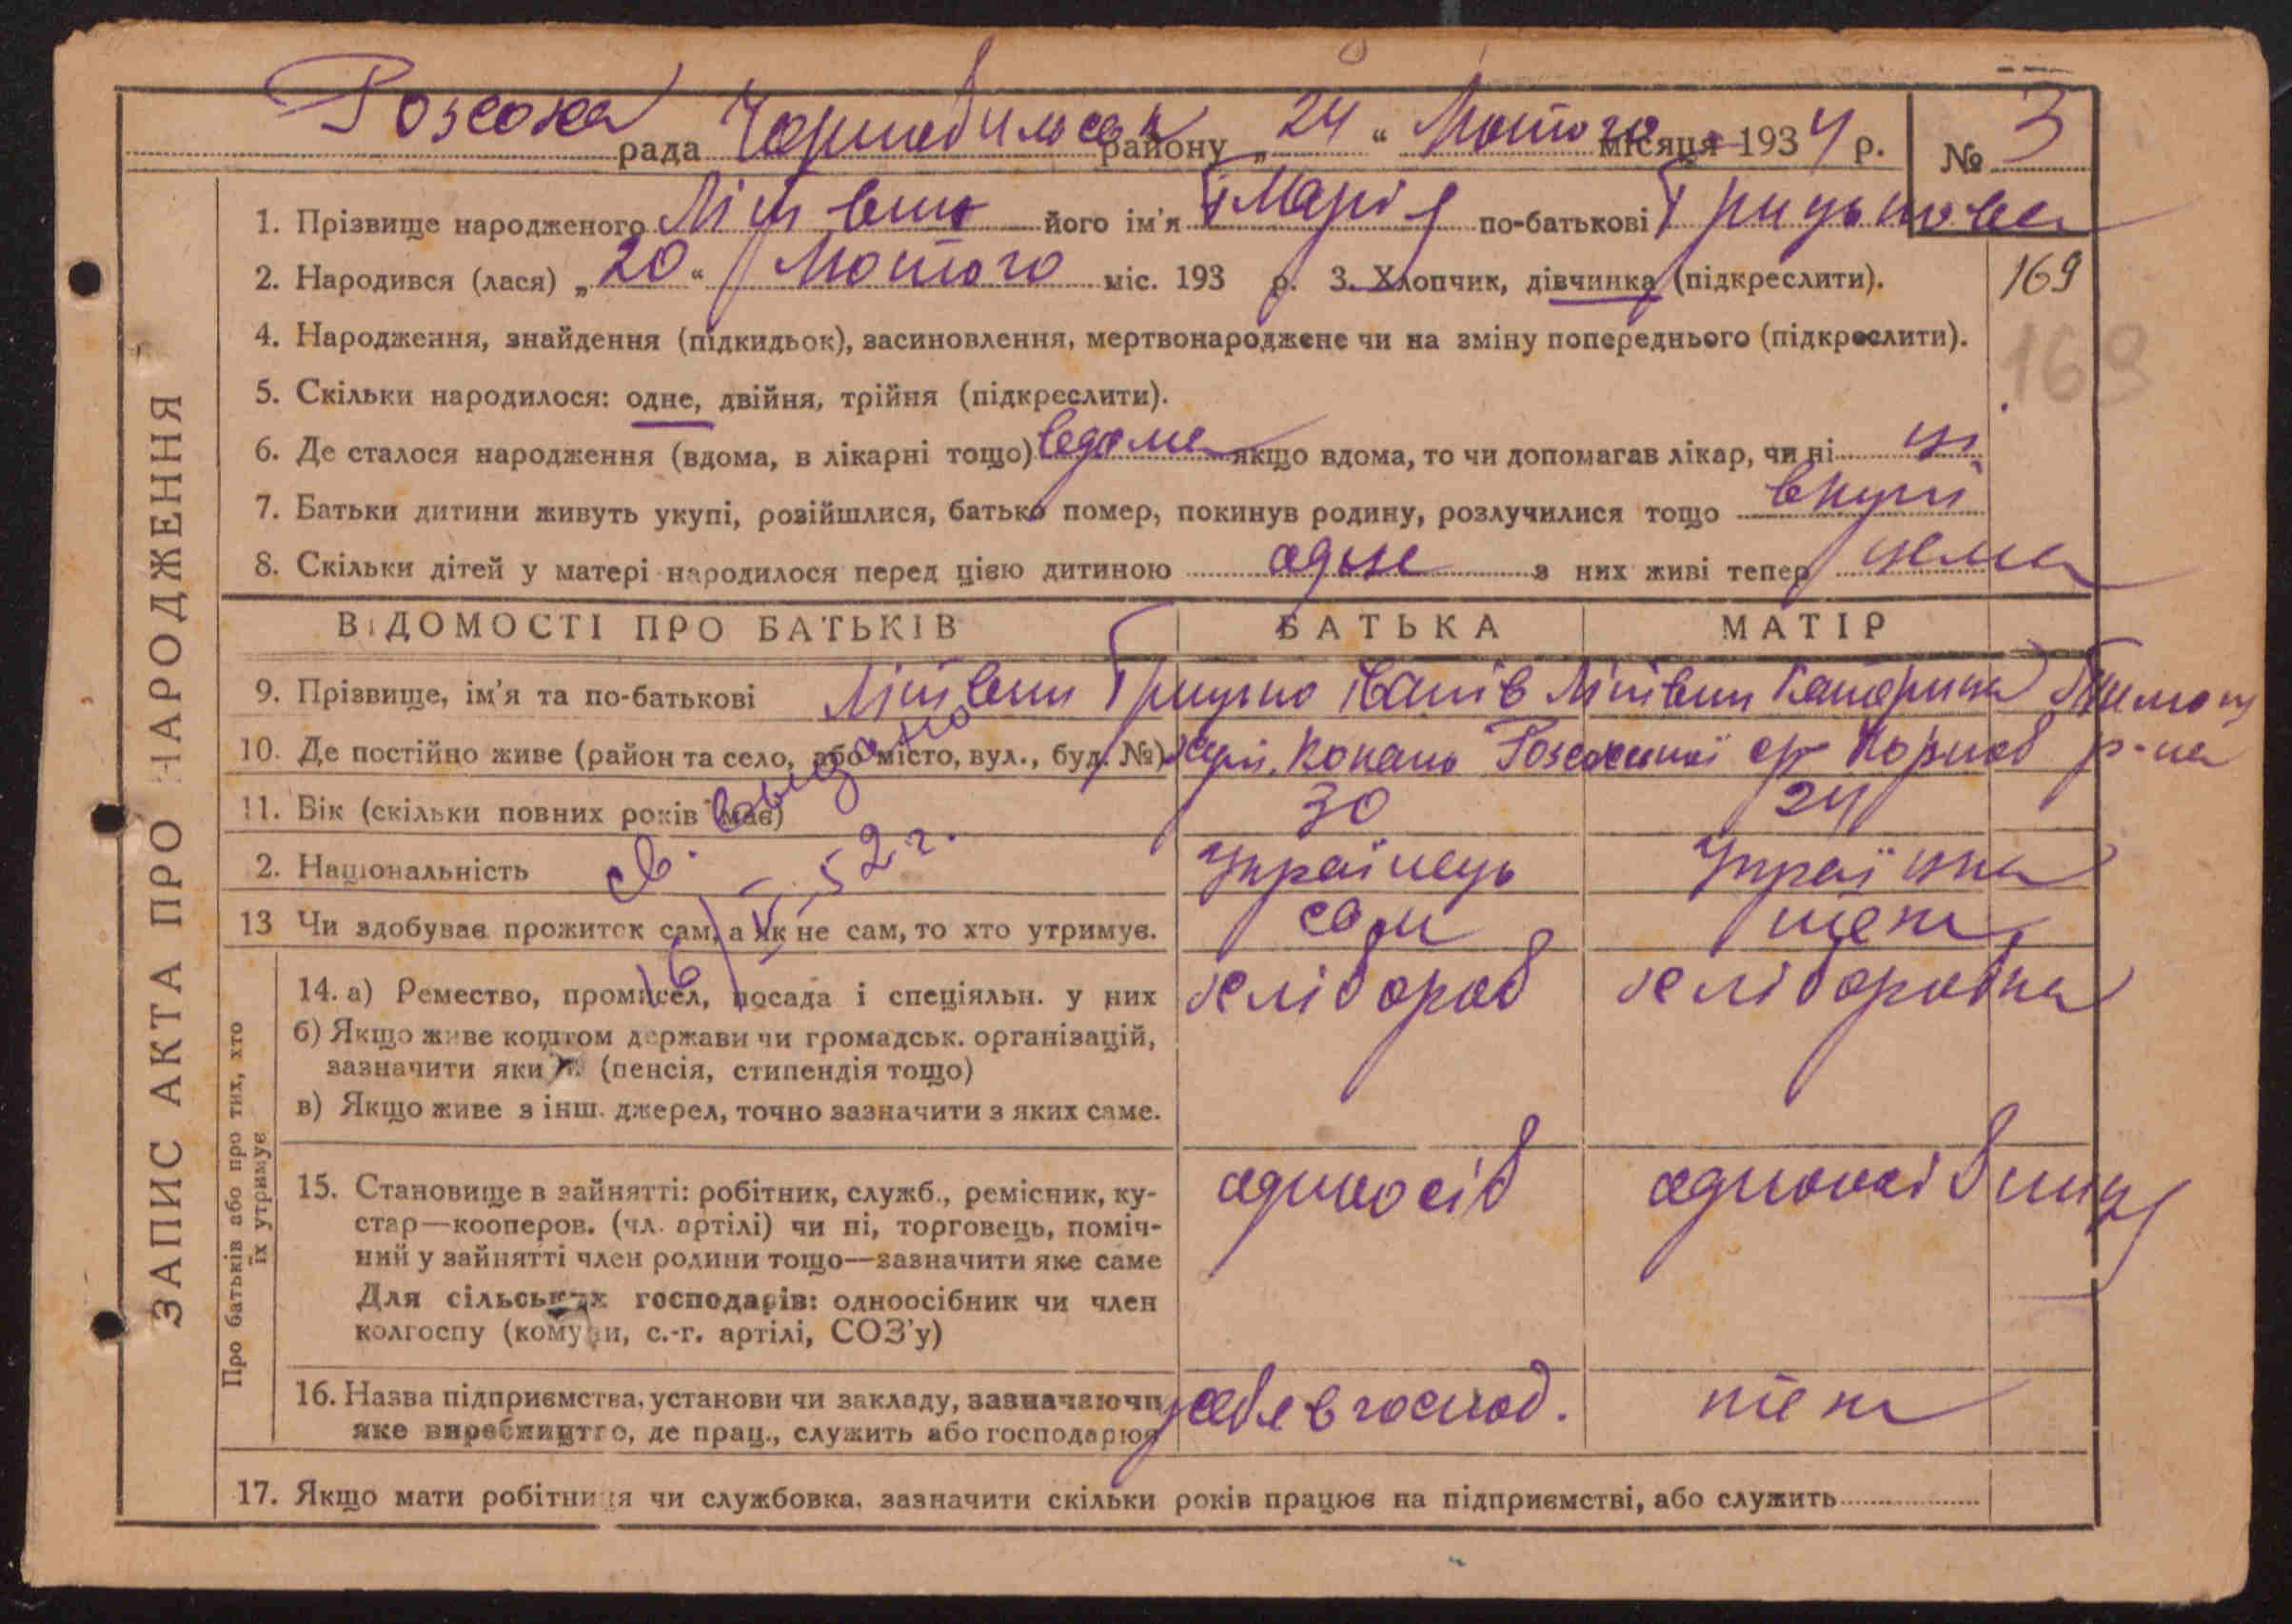 Розсоха рада Чорнобильськ району „ 24 “ Лютого місяця 1934 р. № 3
1. Прізвище народженого Літвин його ім'я Марія по-батькові Грицькова
2. Народився (лася) „ 20 “ Лютого міс. 193 р. 3. Хлопчик, дівчинка (підкреслити). 169
4. Народження, знайдення (підкидьок), засиновлення, мертвонароджене чи на зміну попереднього (підкреслити). 169
5. Скільки народилося: одне, двійня, трійня (підкреслити).
6. Де сталося народження (вдома, в лікарні тощо) вдома якщо вдома, то чи допомагав лікар, чи ні ні
7. Батьки дитини живуть укупі, розійшлися, батько помер, покинув родину, розлучилися тощо вкупі
8. Скільки дітей у матері народилося перед цією дитиною одне з них живі тепер нема
ВІДОМОСТІ ПРО БАТЬКІВ БАТЬКА МАТІР
9. Прізвище, ім'я та по-батькові Літвин Грицько Іванів Літвин Катерина
10. Де постійно живе (район та село, або місто, вул., буд. №) Розсохської ср Чорноб р-на
11. Вік (скільки повних років має) 30 24
2. Національність Українець Українка
св. выдано
16/V-52 г.
13 Чи здобуває прожиток сам, а як не сам, то хто утримує. сам теж
14. а) Ремество, промисел, посада і спеціяльн. у них хлібороб хліборобка
б) Якщо живе коштом держави чи громадськ. організацій,
зазначити яких (пенсія, стипендія тощо)
в) Якщо живе з інш. джерел, точно зазначити з яких саме.
15. Становище в зайнятті: робітник, служб., ремісник, ку-
стар—кооперов. (чл. артілі) чи ні, торговець, поміч-
ний у зайнятті член родини тощо—зазначити яке саме
Для сільських господарів: одноосібник чи член
колгоспу (комуни, с.-г. артілі, СОЗ'у)
одноосіб
16. Назва підприємства, установи чи закладу, зазначаючи
яке виробництво, де прац., служить або господарює
у себе в господ. теж
17. Якщо мати робітниця чи службовка, зазначити скільки років працює на підприємстві, або служить
ЗАПИС АКТА ПРО НАРОДЖЕННЯ
Про батьків або про тих, хто
їх утримує